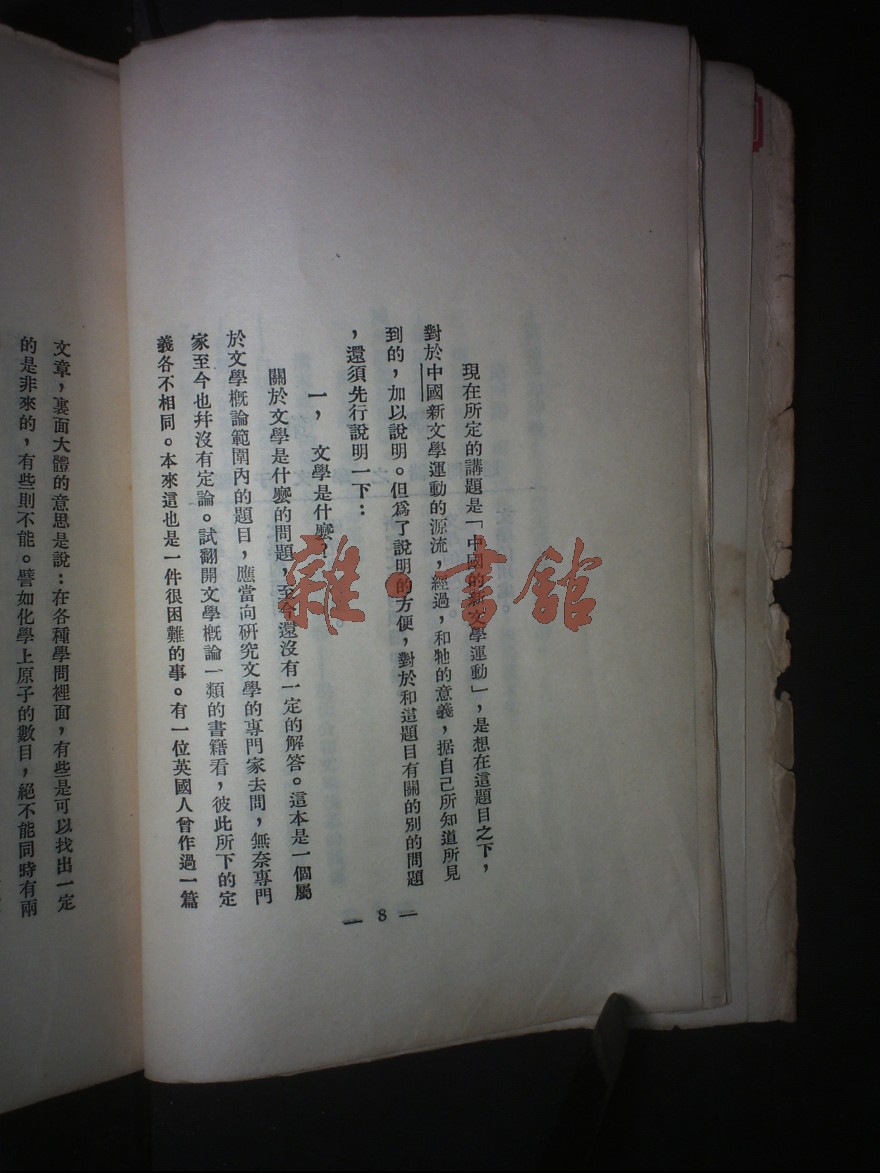 現在所定的講題是「中國的新文學運動」，是想在這題目之下，
對於中國新文學運動的源流，經過，和牠的意義，据自己所知道所見
到的，加以說明。但爲了說明的方便，對於和這題目有關的別的問題
，還須先行說明一下：
一，文學是什麼？
關於文學是什麼的問題，至今還沒有一定的解答。這本是一個屬
於文學概論範圍內的題目，應當向研究文學的專門家去問，無奈專門
家至今也幷沒有定論。試翻開文學概論一類的書籍看，彼此所下的定
義各不相同。本來這也是一件很困難的事。有一位英國人曾作過一篇
— 8 —
文章，裏面大體的意思是說：在各種學問裡面，有些是可以找出一定
的是非來的，有些則不能。譬如化學上原子的數目，絕不能同時有兩
雜·書館